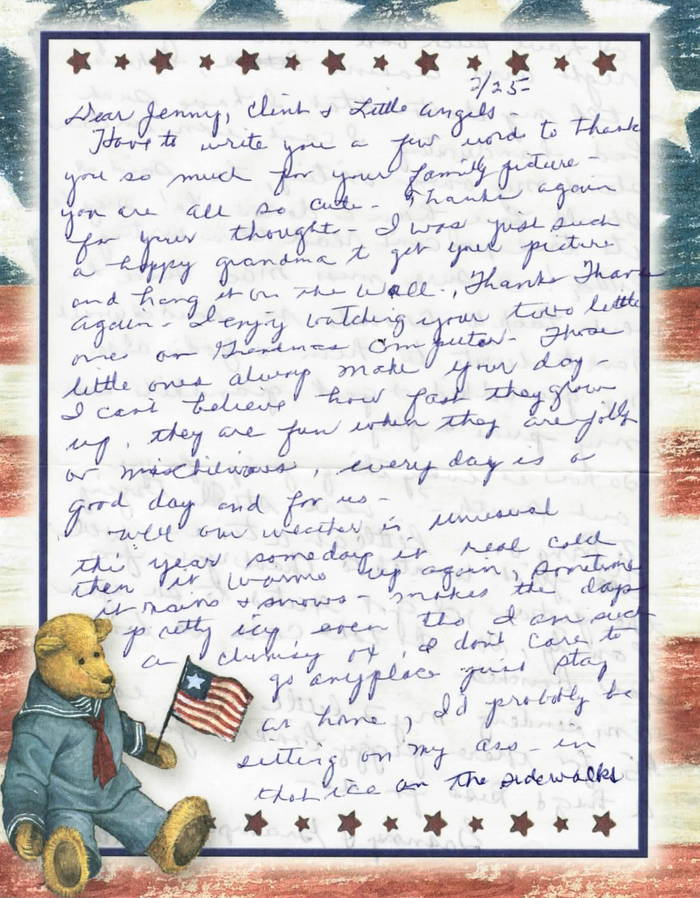 2/25-
Dear Jenny, Clint & Little angels -
Have to write you a few word to thank
you so much for your family picture -
you are all so cute - Thanks again
for your thought - I was just such
a happy grandma t get your picture
and hang it on the Wall -, Thanks Thank
again - I enjoy watching your two little
ones on Grandmas Computer - Those
little ones always make your day -
I can't believe how fast they grow
up, they are fun when they are jolly
or mischievous, every day is a
good day and for us -
Well our weather is unusual
this year someday it real cold
then it warms up again, sometime
it rains & snows - makes the days
pretty icy, even tho I am such
a clumsy ox, I don't care to
go anyplace just stay
at home, I'd probably be
sitting on my ass - in
that ice on the sidewalks